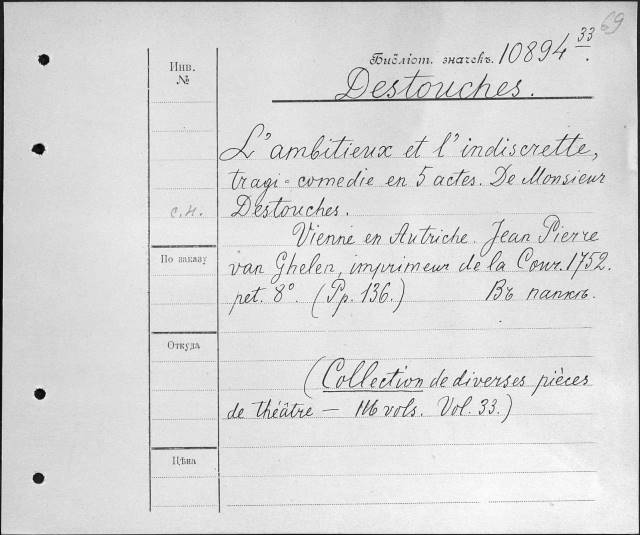 69
Инв.
№
Библіот. значекъ. 10894 33.
Destouches.
L'ambitieux et l'indiscrette,
tragi-comedie en 5 actes. De Monsieur
с.н. Destouches.
Vienne en Autriche. Jean Pierre
По заказу
van Ghelen, imprimeur de la Cour. 1752.
pet. 8°. (Pp. 136.) Въ папкѣ.
Откуда
(Collection de diverses pièces
de théâtre — 116 vols. Vol. 33.)
Цѣна